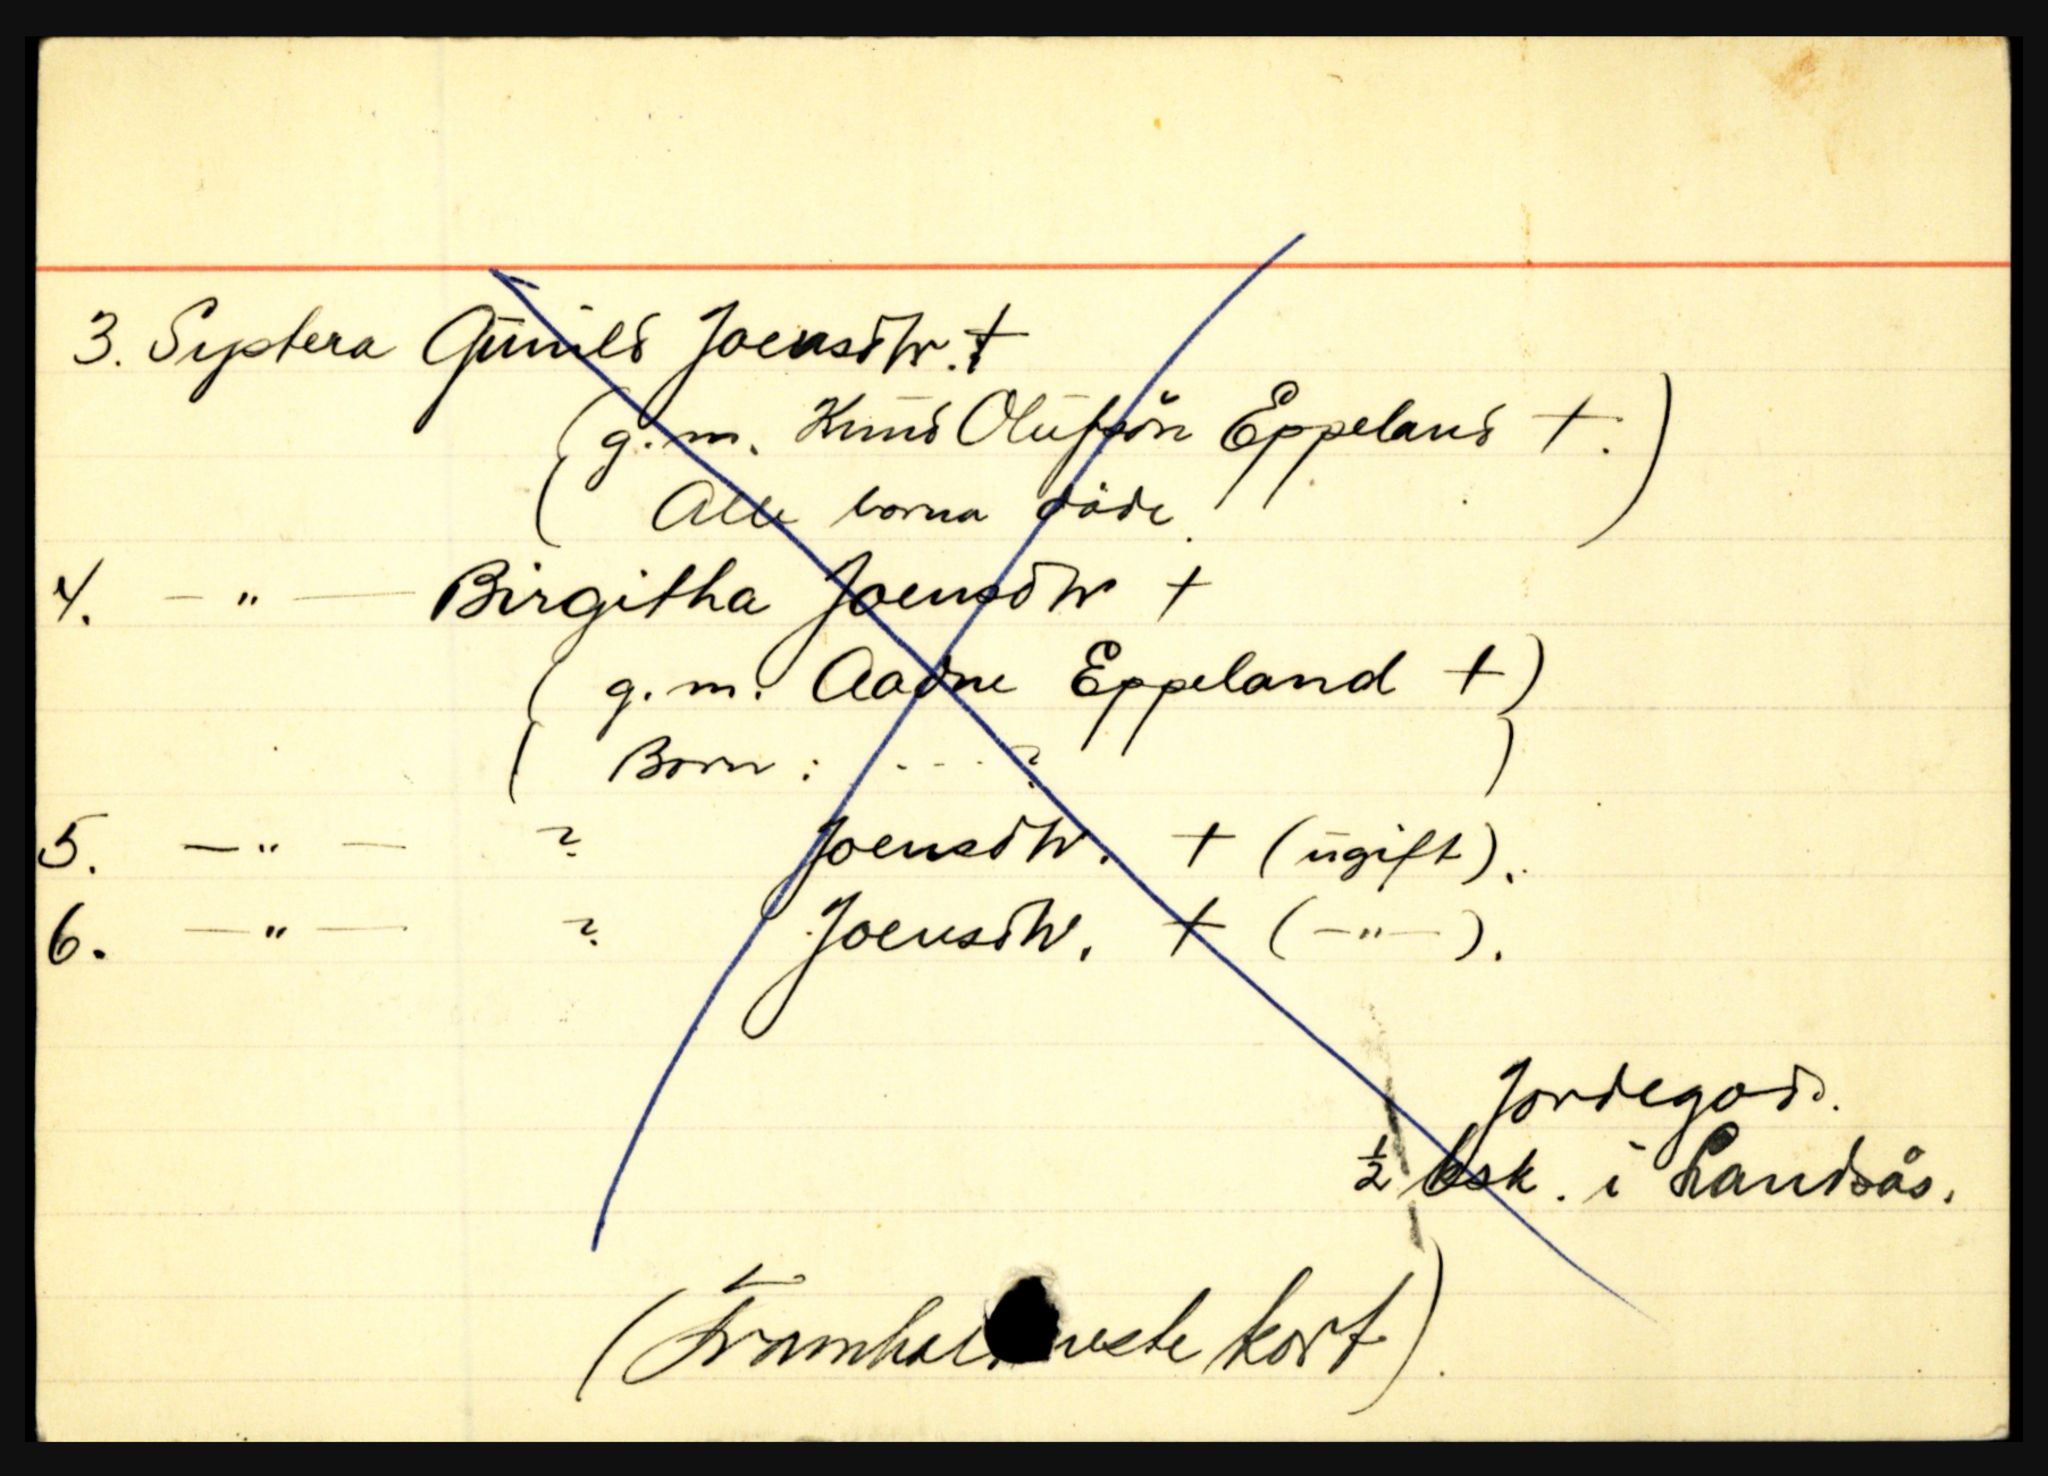 3. Systera Gunild Joensdtr. †
(g.m. Knud Olufsön Eppeland †.)
( Alle borna döde. )
4. — " — Birgitha Joensdtr †
( g.m. Aadne Eppeland † )
( Born : - - - ? )
5. — " — ? Joensdtr. † (ugift).
6. — " — ? Joensdtr. † (—"—).
Jordegods.
½ bsk. i Landsås.
(Framhald neste kort).